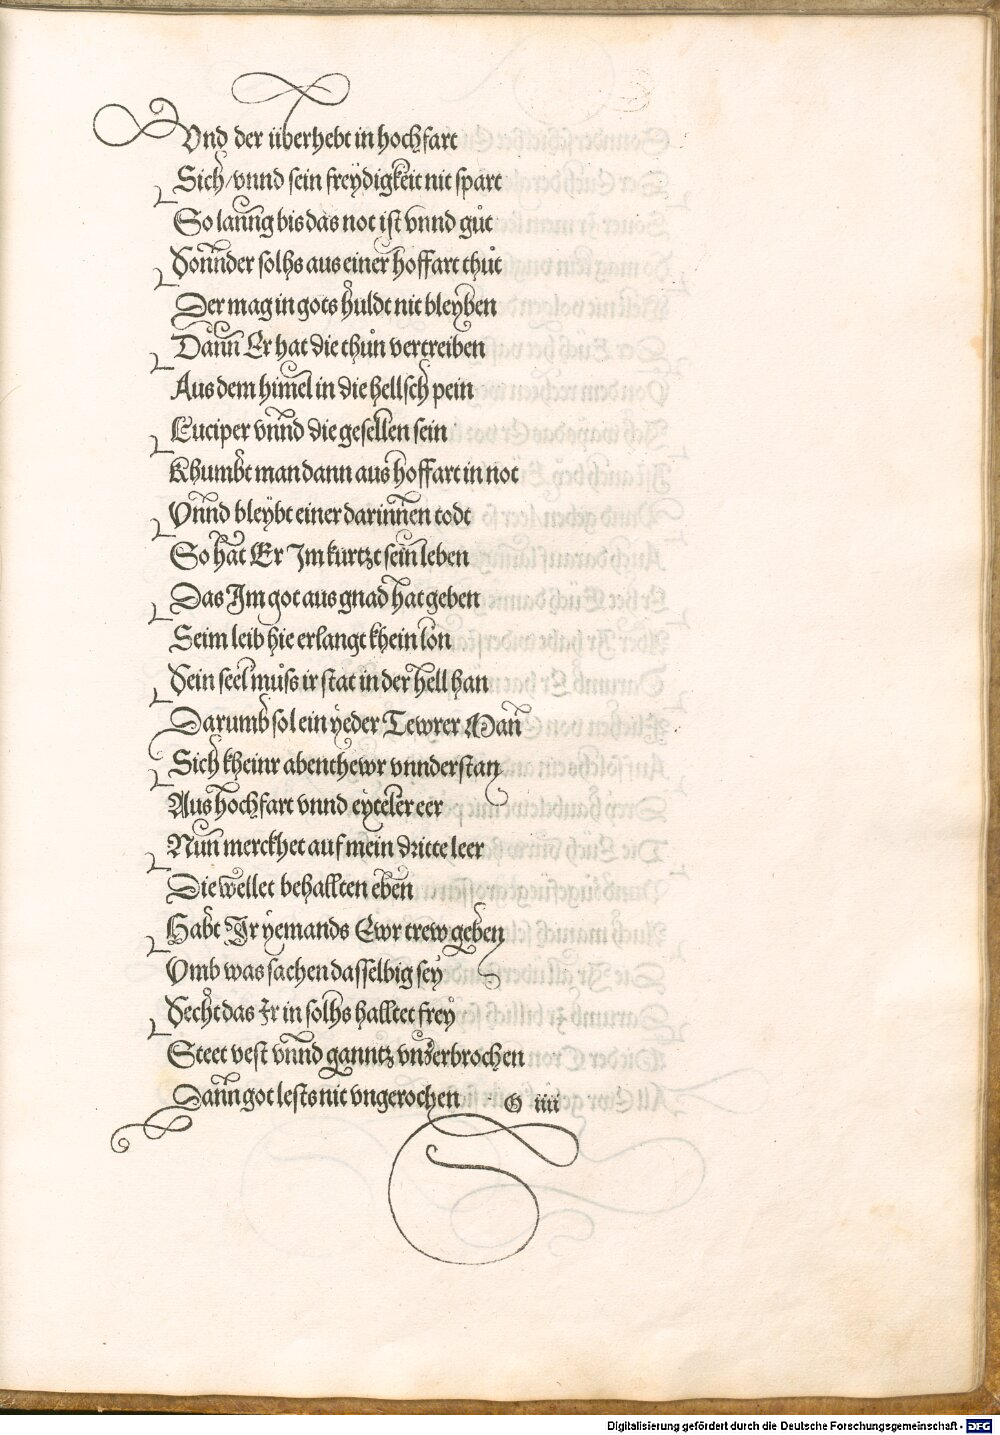 Vnd der überhebt in hochfart
Sich/vnnd sein freÿdigkeit nit spart
So lanng bis das not ist vnnd gůt
Sonnder solhs aus einer hoffart thůt
Der mag in gots huldt nit bleyben
Dann Er hat die thůn vertreiben
Aus dem himel in die hellsch pein
Luciper vnnd die gesellen sein
Khumbt man dann aus hoffart in not
Vnnd bleybt einer darinnen todt
So hat Er Im kurtzt sein leben
Das Im got aus gnad hat geben
Seim leib hie erlangt khein lon
Sein seel můss ir stat in der hell han
Darumb sol ein yeder Tewrer Man
Sich kheinr abenthewr vnnderstan
Aus hochfart vnnd eyteler eer
Nun merckhet auf mein dritte leer
Die wellet behallten eben
Habt Ir yemands Ewr trew geben
Vmb was sachen dasselbig sey
Secht das Ir in solhs halltet frey
Steet vest vnnd ganntz vnzerbrochen
Dann got lessts nit vngerochen
G iiii
Digitalisierung gefördert durch die Deutsche Forschungsgemeinschaft - DFG